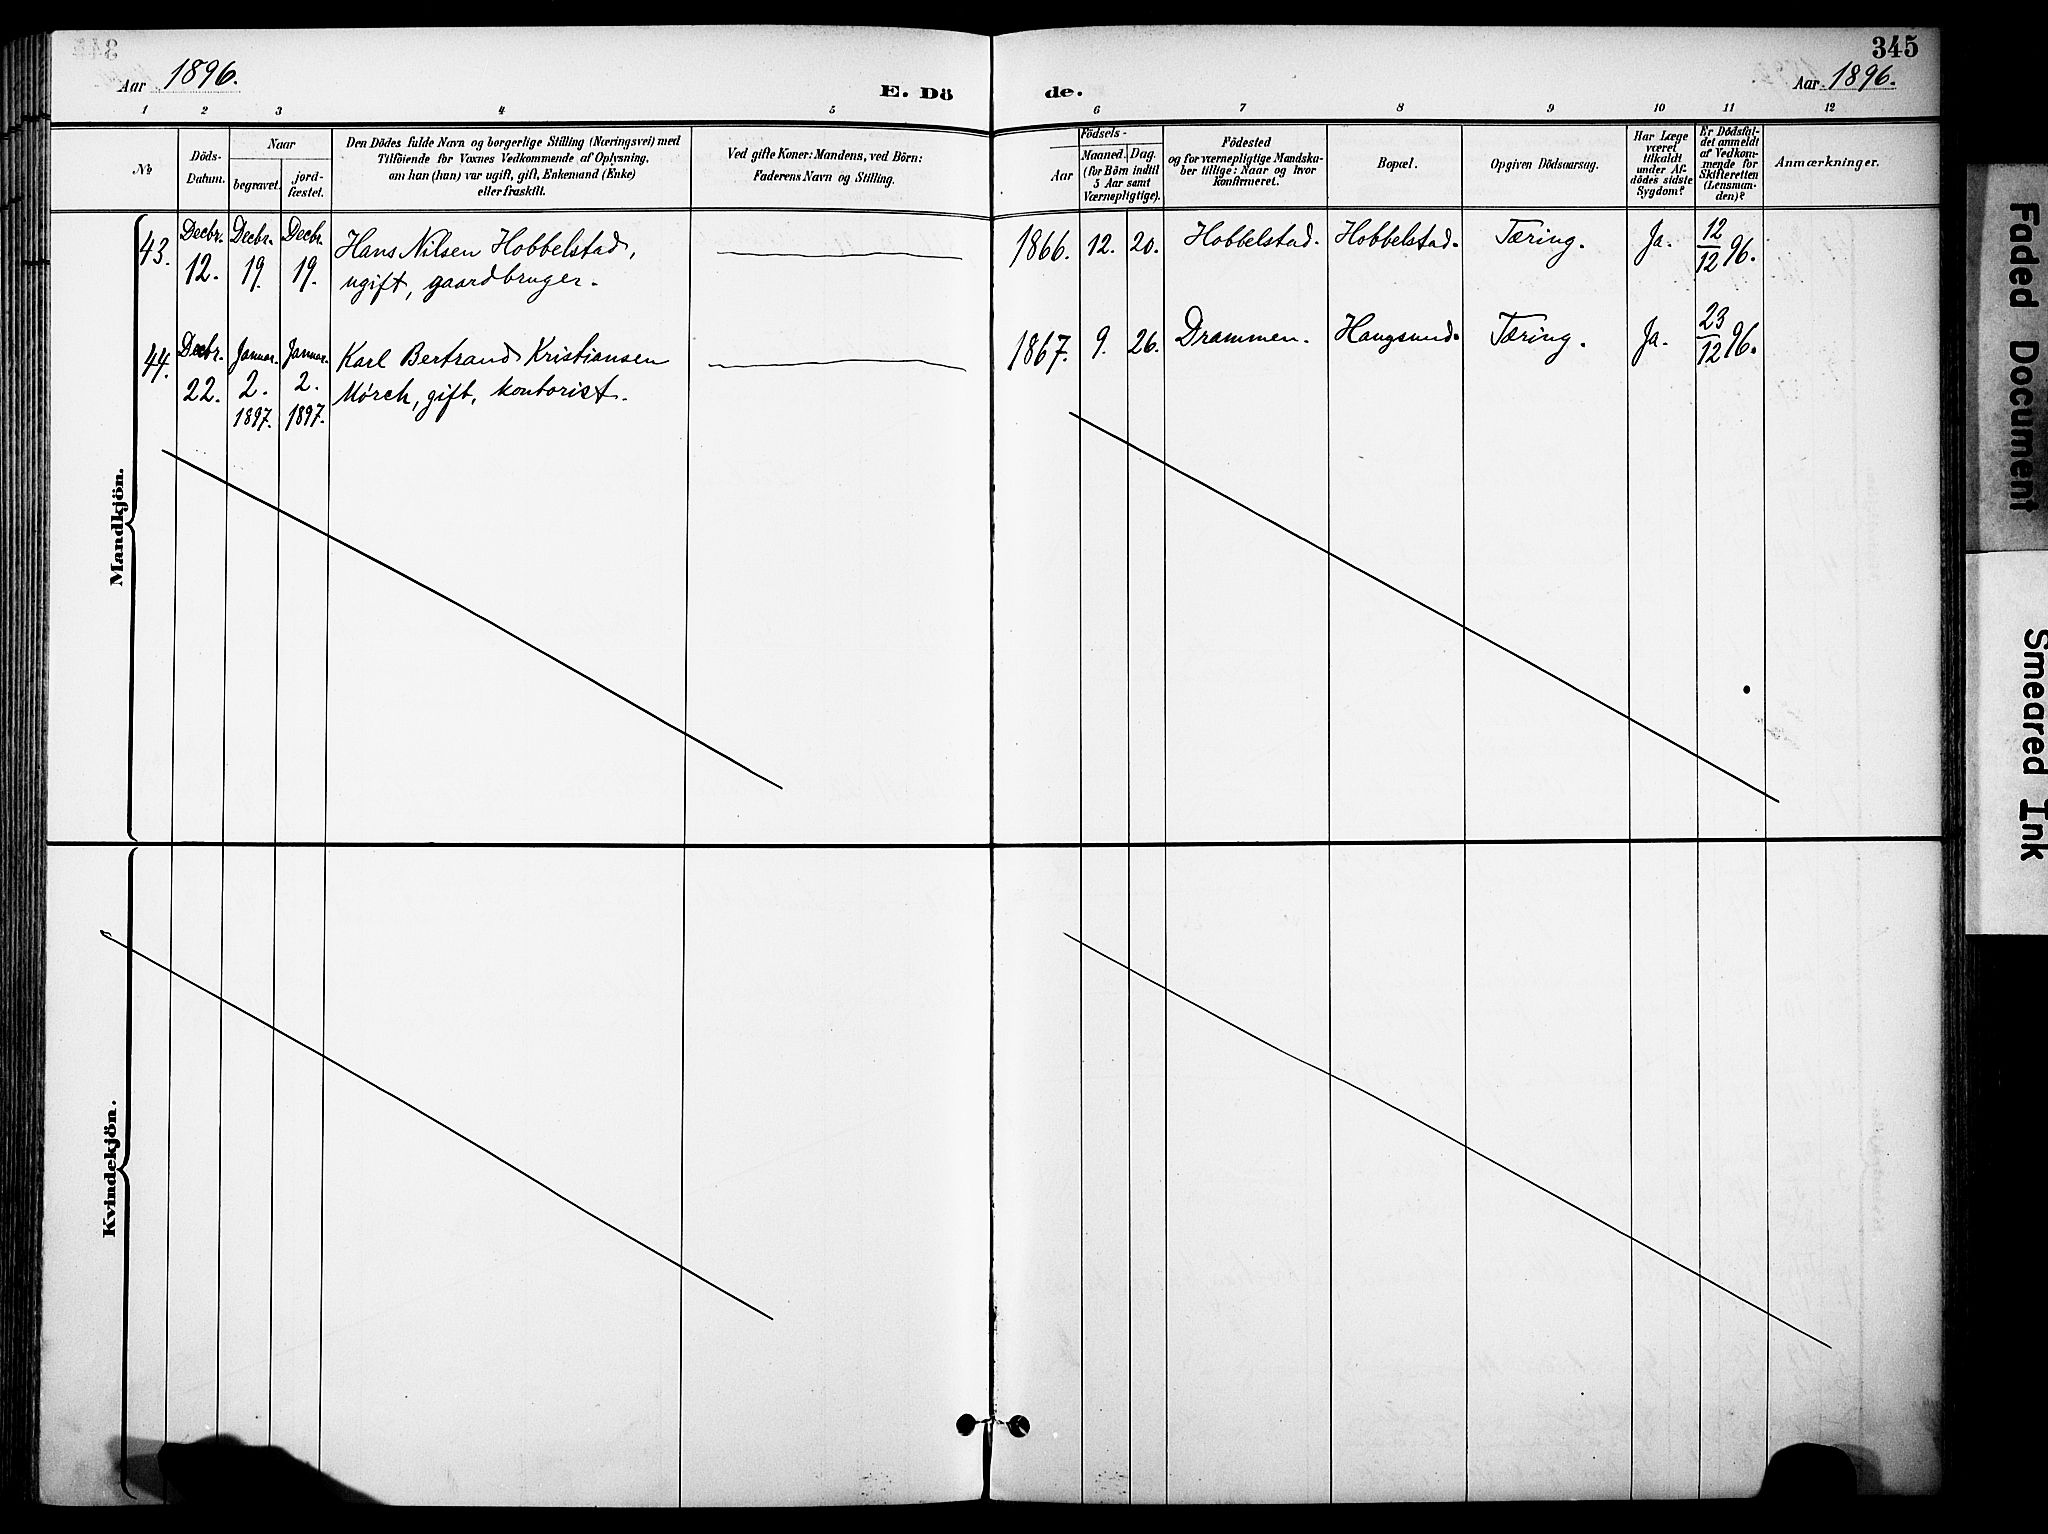 345
Aar 1896.
E. Dö
de.
Aar 1896.
1 2 3 4 5 6 7 8 9 10 11 12
No
Döds-
Datum.
Naar
begravet.
jord-
fæstet.
Den Dödes fulde Navn og borgerlige Stilling (Næringsvei) med
Tilföiende for Voxnes Vedkommende af Oplysning,
om han (hun) var ugift, gift, Enkemand (Enke)
eller fraskilt.
Ved gifte Koner: Mandens, ved Börn:
Faderens Navn og Stilling.
Födsels-
Aar
Maaned. Dag.
(for Börn indtil
5 Aar samt
Værnepligtige).
Födested
og for værnepligtige Mandska-
ber tillige: Naar og hvor
konfirmeret.
Bopæl.
Opgiven Dödsaarsag.
Har Læge
været
tilkaldt
under Af-
dödes sidste
Sygdom?
Er Dödsfal-
det anmeldt
af Vedkom-
mende for
Skifteretten
(Lensman-
den)?
Anmærkninger.
Mandkjön.
43.
Decbr.
12.
Decbr.
19.
Decbr.
19.
Hans Nilsen Hobbelstad,
ugift, gaardbruger.
1866. 12. 20. Hobbelstad. Hobbelstad. Tæring. Ja. 12/12 96.
44.
Decbr.
22.
Januar.
2.
1897.
Januar.
2.
1897.
Karl Bertrand Kristiansen
Mørch, gift, kontorist.
1867. 9. 26. Drammen. Haugsund. Tæring. Ja. 23/12 96.
Kvindekjön.
Faded Document
Smeared Ink